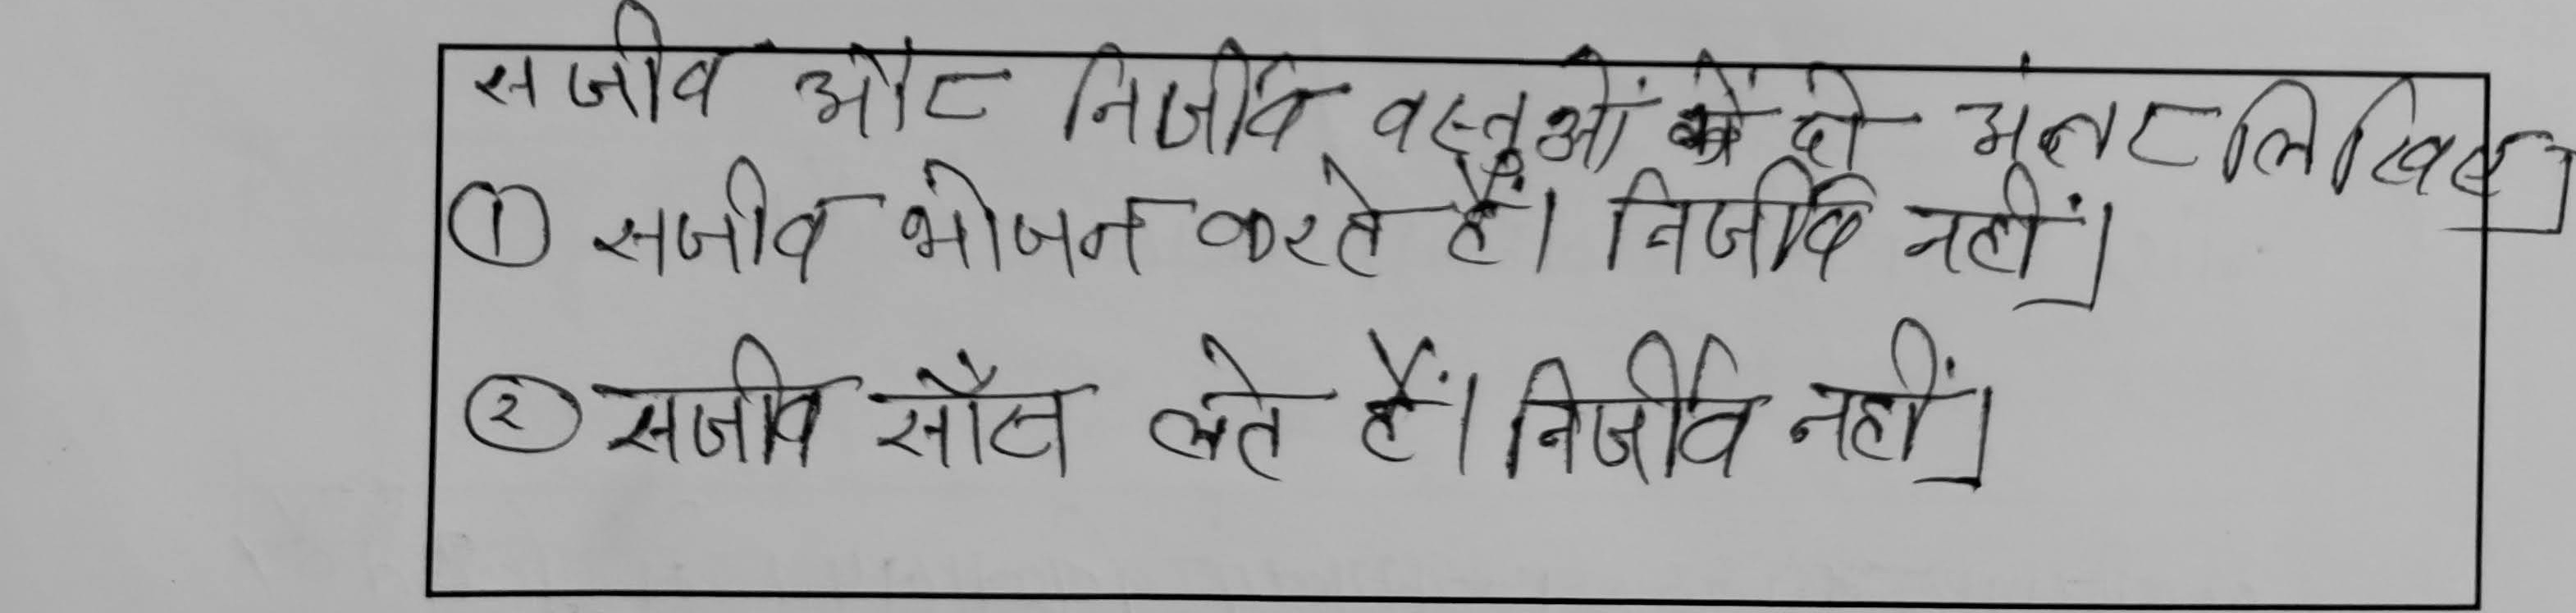 सजीव और निर्जीव वस्तुओं में दो अन्तर लिखिए।
① सजीव भोजन करते हैं। निर्जीव नहीं।
② सजीव साँस लेते हैं। निर्जीव नहीं।